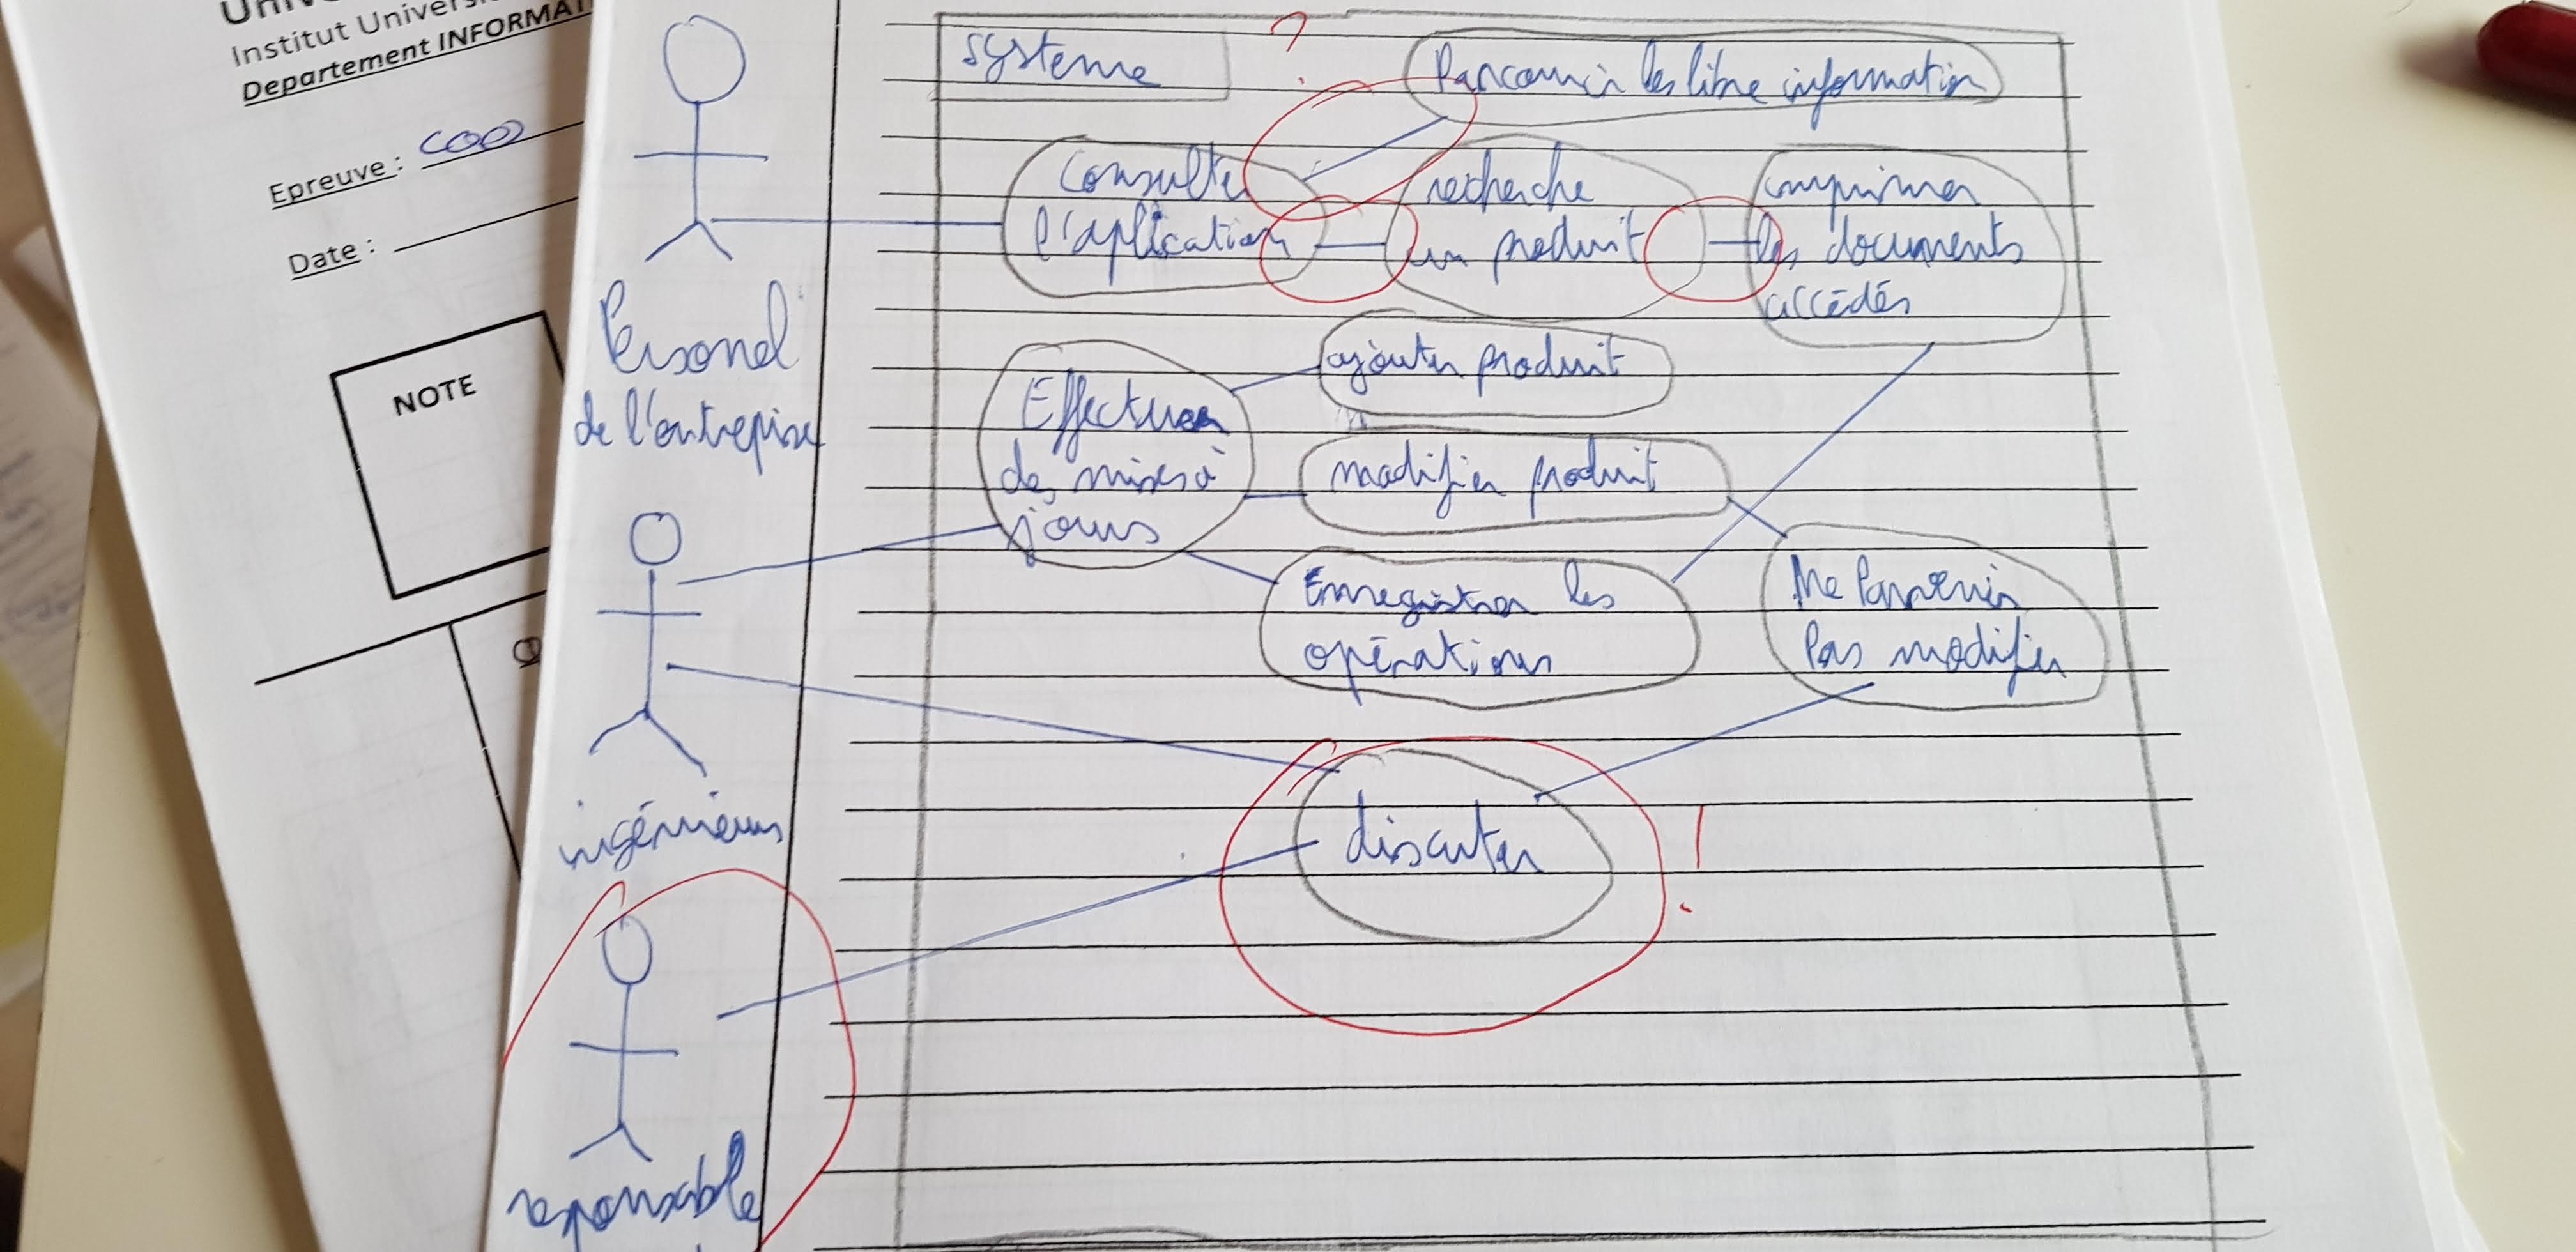 Institut Univers
Departement INFORMAT
Epreuve : COO
Date :
NOTE
système
?
Parcourir les libre information
Consulter
l'aplication
recherche
un produit
imprimer
les documents
accédés
Personel
de l'entreprise
Effectuer
des mises à
jours
ajouter produit
modifier produit
Enregistrer les
opérations
Ne Parvenir
Pas modifier
ingénieurs
discuter
!
responsable